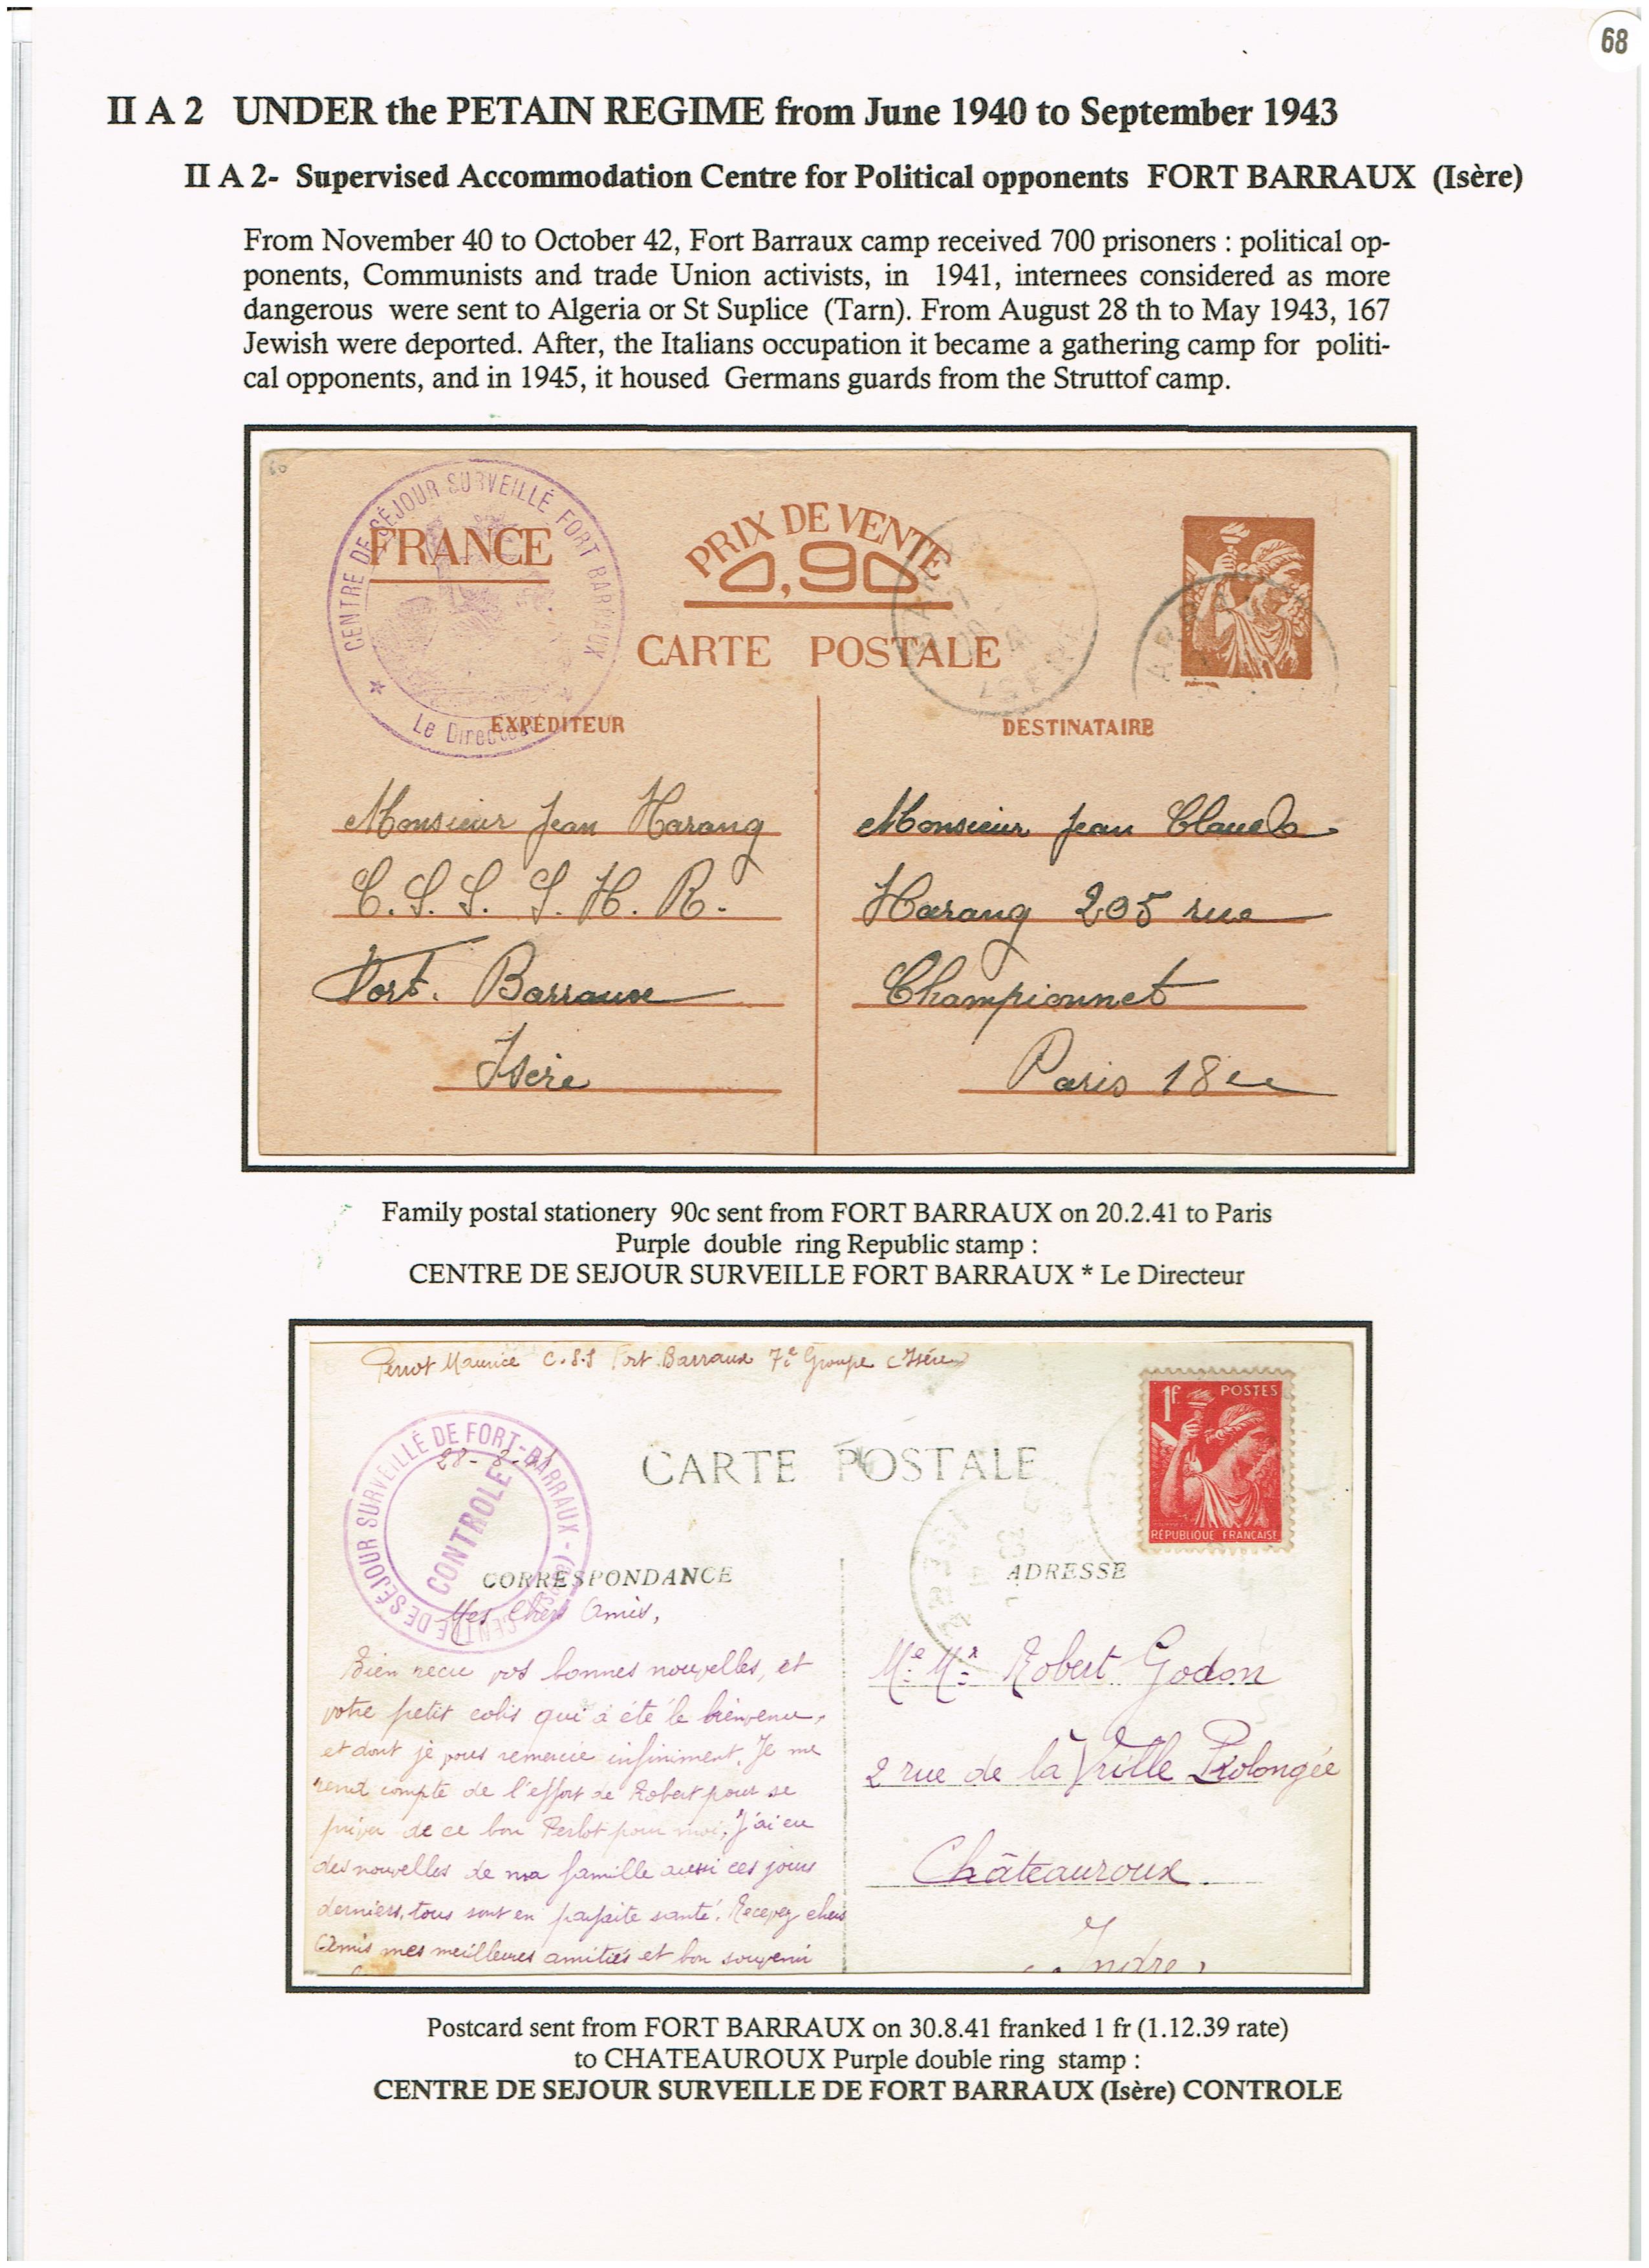 68
II A 2 UNDER the PETAIN REGIME from June 1940 to September 1943
II A 2- Supervised Accommodation Centre for Political opponents FORT BARRAUX (Isère)
From November 40 to October 42, Fort Barraux camp received 700 prisoners : political op-
ponents, Communists and trade Union activists, in 1941, internees considered as more
dangerous were sent to Algeria or St Suplice (Tarn). From August 28 th to May 1943, 167
Jewish were deported. After, the Italians occupation it became a gathering camp for politi-
cal opponents, and in 1945, it housed Germans guards from the Struttof camp.
CENTRE DE SÉJOUR SURVEILLÉ FORT BARRAUX
* Le Directeur
FRANCE
PRIX DE VENTE
0,90
CARTE POSTALE
EXPÉDITEUR
Monsieur Jean Harang
C.S.S. S.H.R.
Fort. Barraux
Isère
DESTINATAIRE
Monsieur Jean Claude
Harang 205 rue
Championnet
Paris 18e
Family postal stationery 90c sent from FORT BARRAUX on 20.2.41 to Paris
Purple double ring Republic stamp :
CENTRE DE SEJOUR SURVEILLE FORT BARRAUX * Le Directeur
Perrot Maurice C.S.S Fort Barraux 7e Groupe (Isère)
CENTRE DE SÉJOUR SURVEILLÉ DE FORT-BARRAUX - (Isère)
CONTROLE
CARTE POSTALE
1f POSTES
RÉPUBLIQUE FRANÇAISE
CORRESPONDANCE
Mes Chers Amis,
Bien reçu vos bonnes nouvelles, et
votre petit colis qui a été le bienvenu,
et dont je vous remercie infiniment. Je me
rend compte de l'effort de Robert pour se
priver de ce bon Perlot pour moi. J'ai eu
des nouvelles de ma famille aussi ces jours
derniers, tous sont en parfaite santé. Recevez chers
Amis mes meilleures amitiés et bon souvenir
ADRESSE
Me Mr Robert Godon
2 rue de la Vrille Prolongée
Châteauroux.
Indre
Postcard sent from FORT BARRAUX on 30.8.41 franked 1 fr (1.12.39 rate)
to CHATEAUROUX Purple double ring stamp :
CENTRE DE SEJOUR SURVEILLE DE FORT BARRAUX (Isère) CONTROLE